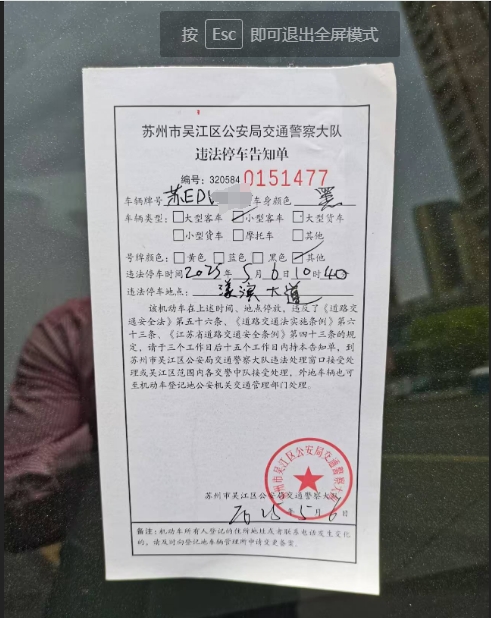 按 Esc 即可退出全屏模式
苏州市吴江区公安局交通警察大队
违法停车告知单
编号：320584 0151477
车辆牌号 苏ED 车身颜色 黑
车辆类型：□大型客车 ☑小型客车 □大型货车
□小型货车 □摩托车 □其他
号牌颜色：□黄色 □蓝色 □黑色 ☑其他
违法停车时间 2025年5月6日10时40
违法停车地点： 大道
该机动车在上述时间、地点停放，违反了《道路交
通安全法》第五十六条、《道路交通法实施条例》第六
十三条、《江苏省道路交通安全条例》第四十三条的规
定，请于三个工作日后十五个工作日内持本告知单，到
苏州市吴江区公安局交通警察大队违法处理窗口接受处
理或吴江区范围内各交警中队接受处理，外地车辆也可
至机动车登记地公安机关交通管理部门处理。
苏州市吴江区公安局交通警察大队
苏州市吴江区公安局交通警察大队
2025年5月6日
备注：机动车所有人登记的住所地址或者联系电话发生变化
的，请及时向登记地车辆管理所申请变更备案。